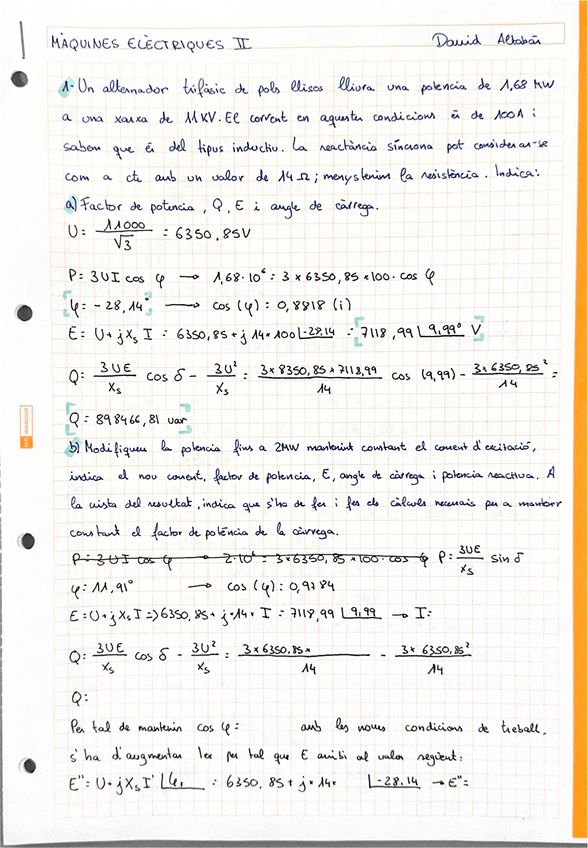 MÀQUINES ELÈCTRIQUES II
David Altabàs
1. Un alternador trifàsic de pols llisos lliura una potencia de 1,68 MW
a una xarxa de 11KV. El corrent en aquestes condicions és de 100A i
sabem que és del tipus inductiu. La reactància síncrona pot considerar-se
com a cte amb un valor de 14Ω; menystenim la resistència. Indica:
a) Factor de potencia, Q, E i angle de càrrega.
U = 11000/√3 = 6350,85V
P = 3UI cos φ → 1,68·10⁶ = 3 × 6350,85 × 100 · cos φ
φ = -28,14° → cos (φ) = 0,8818 (i)
E = U + jXs I = 6350,85 + j 14 × 100 ∠-28,14 = 7118,99 ∠9,99° V
Q = 3UE/Xs cos δ - 3U²/Xs = 3 × 8350,85 × 7118,99/14 cos (9,99) - 3 × 6350,85²/14 =
Q = 898466,81 var
b) Modifiquem la potencia fins a 2MW mantenint constant el corrent d'excitació,
indica el nou corrent, factor de potencia, E, angle de càrrega i potencia reactiva. A
la vista del resultat, indica que s'ha de fer i fes els càlculs necessaris per a mantenir
constant el factor de potència de la càrrega.
P = 3UI cos φ → 2·10⁶ = 3 × 6350,85 × 100 · cos φ P = 3UE/Xs sin δ
φ = 11,91° → cos (φ) = 0,9784
E = U + jXs I => 6350,85 + j · 14 · I = 7118,99 ∠9,99 → I =
Q = 3UE/Xs cos δ - 3U²/Xs = 3 × 6350,85 ×/14 - 3 × 6350,85²/14
Q =
Per tal de mantenir cos φ = amb les noves condicions de treball,
s'ha d'augmentar per tal que E arribi al valor següent:
E'' = U + jXs I' ∠φ₁ = 6350,85 + j · 14 · ∠-28,14 → E'' =